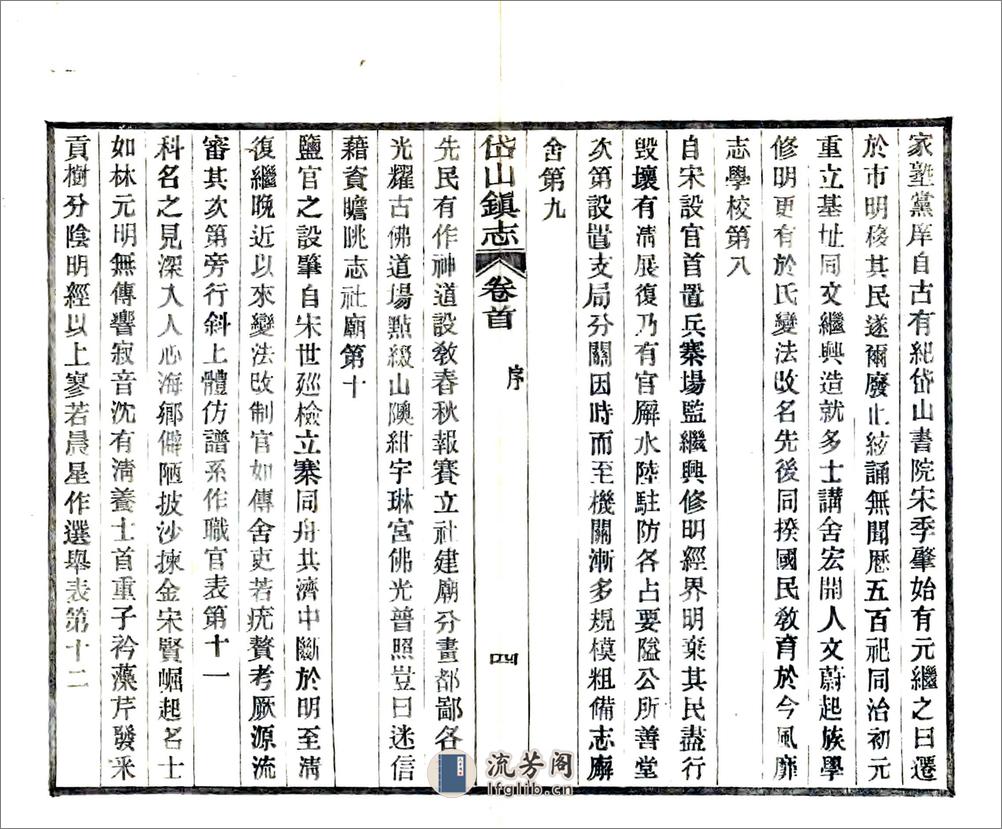 家塾黨庠自古有紀岱山書院宋季肇始有元繼之曰遷
於市明移其民遂爾廢止絃誦無聞歷五百祀同治初元
重立基址同文繼興造就多士講舍宏開人文蔚起族學
修明更有於氏變法改名先後同揆國民敎育於今風靡
志學校第八
自宋設官首置兵寨場監繼興修明經界明棄其民盡行
毀壞有淸展復乃有官廨水陸駐防各占要隘公所善堂
次第設置支局分關因時而至機關漸多規模粗備志廨
舍第九
岱山鎭志 卷首 序 四
先民有作神道設敎春秋報賽立社建廟分畫都鄙各
光耀古佛道場點綴山隩紺宇琳宮佛光普照豈曰迷信
藉資瞻眺志社廟第十
鹽官之設肇自宋世廵檢立寨同舟共濟中斷於明至淸
復繼晚近以來變法改制官如傳舍吏若疣贅考厥源流
審其次第旁行斜上體仿譜系作職官表第十一
科名之見深入人心海鄉僻陋披沙揀金宋賢崛起名士
如林元明無傳響寂音沈有淸養士首重子衿藻芹發采
貢樹分陰明經以上寥若晨星作選舉表第十二
流芳阁
lfglib.cn